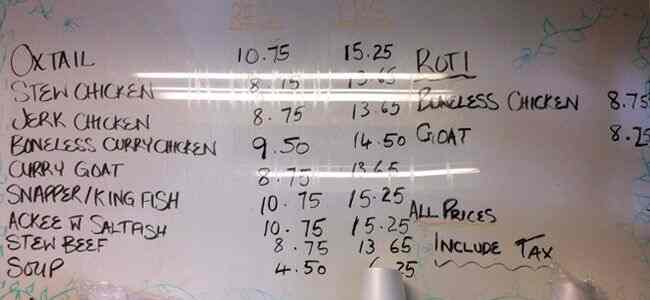 OXTAIL 10.75 15.25
STEW CHICKEN 8.75 13.65
JERK CHICKEN 8.75 13.65
BONELESS CURRY CHICKEN 9.50 14.50
CURRY GOAT 8.75 13.65
SNAPPER/KING FISH 10.75 15.25
ACKEE W SALTFISH 10.75 15.25
STEW BEEF 8.75 13 65
SOUP 4.50 25
ROTI
BONELESS CHICKEN 8.75
GOAT
ALL PRICES
INCLUDE TAX